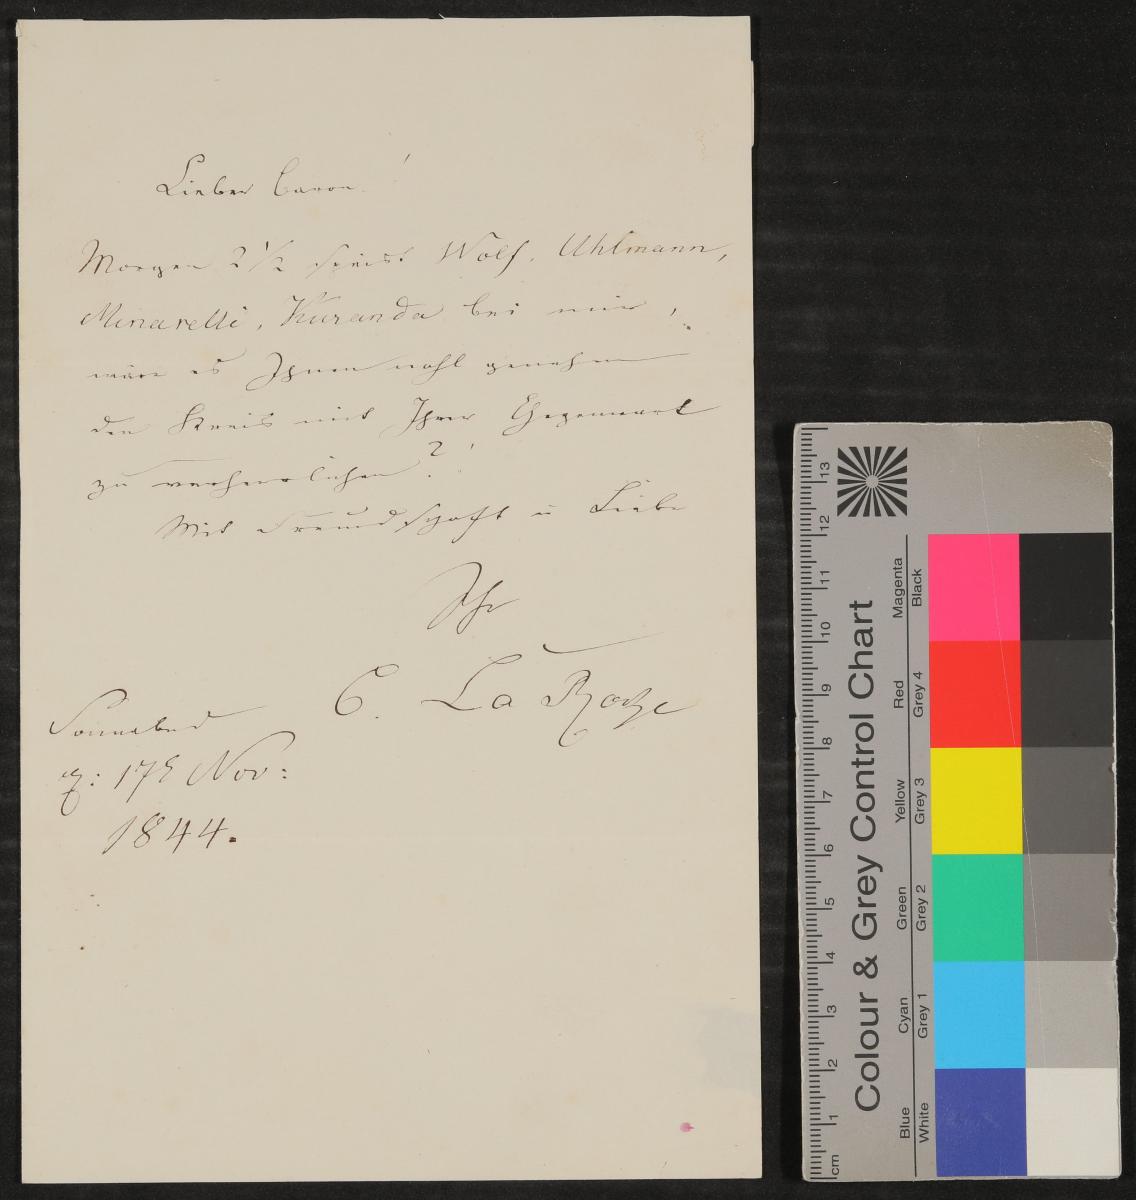 Lieber Baron!
Morgen 2 1/2 speist Wolf, Uhlmann,
Minarelli, Kuranda bei mir,
wäre es Ihnen wohl genehm
den Kreis mit Ihrer Gegenwart
zu verherrlichen?
Mit Freundschaft u Liebe
Ihr
C. La Roche
Sonnabend
d: 17t Nov:
1844.
Colour & Grey Control Chart
Magenta
Black
Red
Grey 4
Yellow
Grey 3
Green
Grey 2
Cyan
Grey 1
Blue
White
cm 1 2 3 4 5 6 7 8 9 10 11 12 13